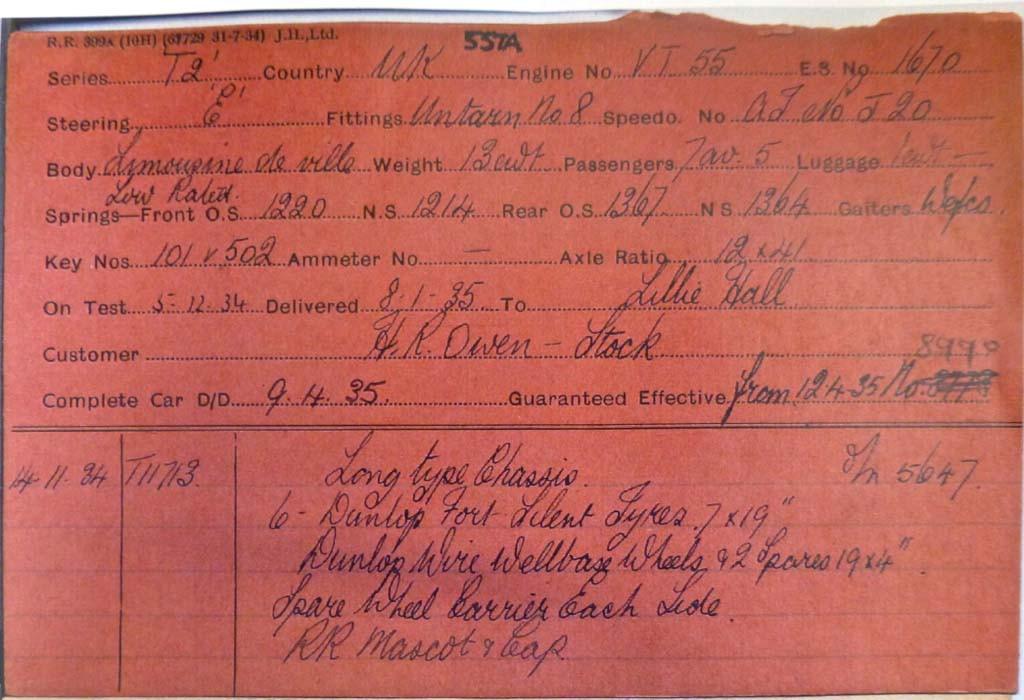 R.R. 399A (10H) (67729 31-7-34) J.H.,Ltd. 55TA
Series T2 Country UK Engine No VT 55 E.S. No 1670
Steering 'D' E Fittings Untarn No 8 Speedo. No AT No J 20
Body Limousine de ville Weight 13 cwt Passengers 7 av. 5 Luggage 1 cwt —
Low Rated.
Springs—Front O.S. 1220 N.S. 1214 Rear O.S. 1367 N S 1364 Gaiters Wefco.
Key Nos 101 v 502 Ammeter No — Axle Ratio 12 x 41
On Test 5-12-34 Delivered 8-1-35 To Lillie Hall
Customer H.R. Owen - Stock 8990
Complete Car D/D 9.4.35. Guaranteed Effective from 12.4.35 No.
14-11-34 T11713. Long type Chassis. 5647.
6 - Dunlop Fort Silent Tyres. 7 x 19"
Dunlop Wire Wellbase Wheels & 2 Spares 19 x 4"
Spare Wheel Carrier Each Side.
RR Mascot & Cap.